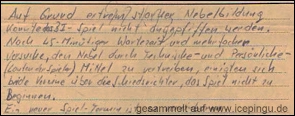 Auf Grund extrem starker Nebelbildung
konnte das Spiel nicht angepfiffen werden.
Nach 45-Minütiger Wartezeit und mehrfachen
versuche, den Nebel durch Technische- und Persönliche-
Mittel zu vertreiben, einigten sich
beide Vereine über die Schiedsrichter, das Spiel nicht zu
Beginnen.
Ein neuer Spiel-Termin
gesammelt auf www.icepingu.de